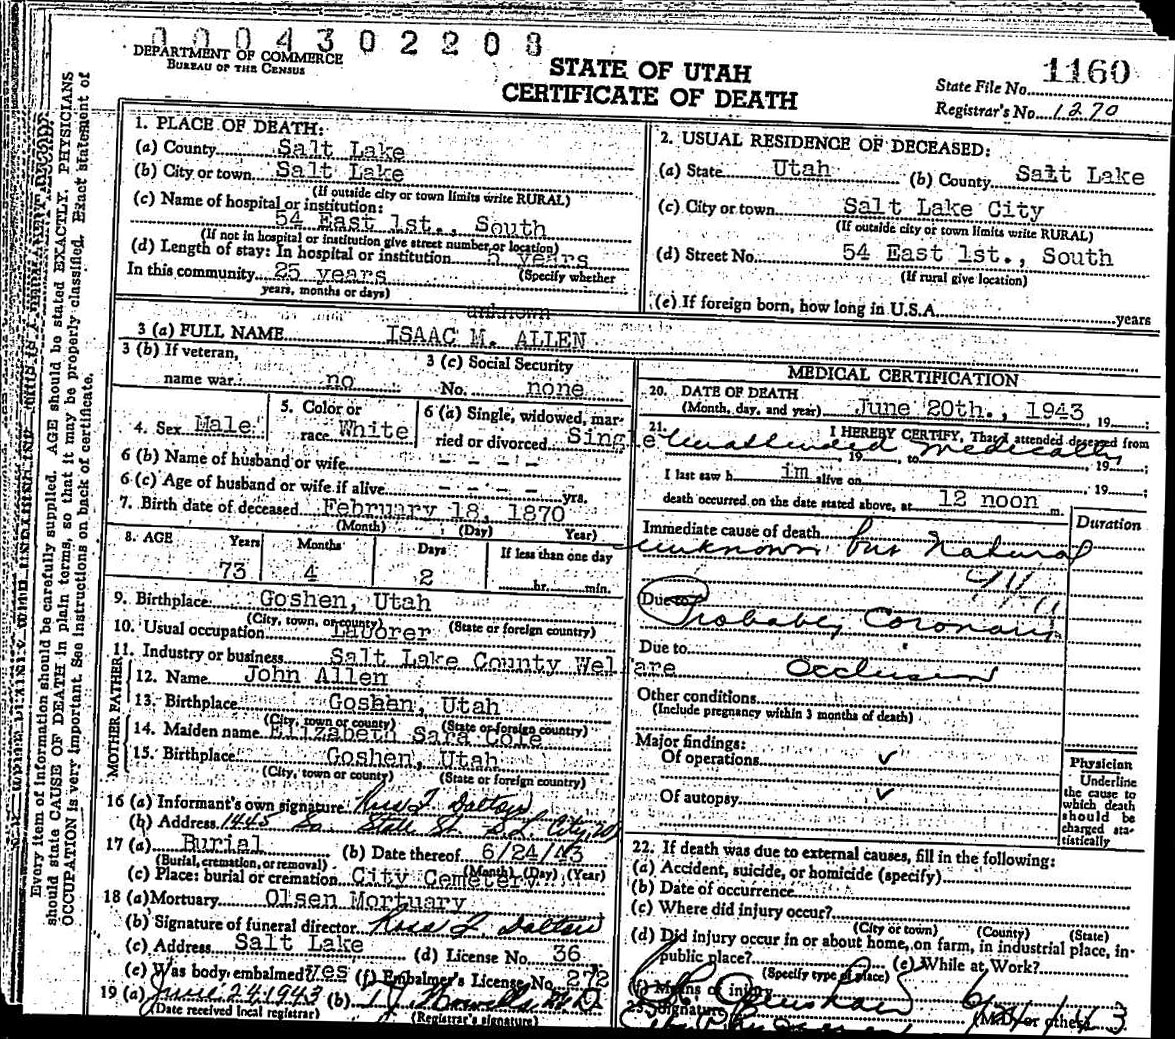 0004302208
DEPARTMENT OF COMMERCE
BUREAU OF THE CENSUS
STATE OF UTAH
CERTIFICATE OF DEATH
State File No. 1160
Registrar's No. 1270
Every item of information should be carefully supplied. AGE should be stated EXACTLY. PHYSICIANS
should state CAUSE OF DEATH in plain terms, so that it may be properly classified. Exact statement of
OCCUPATION is very important. See instructions on back of certificate.
1. PLACE OF DEATH:
(a) County Salt Lake
(b) City or town Salt Lake
(If outside city or town limits write RURAL)
(c) Name of hospital or institution:
54 East 1st., South
(If not in hospital or institution give street number or location)
(d) Length of stay: In hospital or institution 5 years
In this community 25 years (Specify whether
years, months or days)
2. USUAL RESIDENCE OF DECEASED:
(a) State Utah (b) County Salt Lake
(c) City or town Salt Lake City
(If outside city or town limits write RURAL)
(d) Street No. 54 East 1st., South
(If rural give location)
(e) If foreign born, how long in U.S.A. years
unknown
3 (a) FULL NAME ISAAC M. ALLEN
3 (b) If veteran, name war. no
3 (c) Social Security No. none
4. Sex Male
5. Color or race White
6 (a) Single, widowed, married or divorced Single
6 (b) Name of husband or wife - - - -
6 (c) Age of husband or wife if alive - - - - yrs.
7. Birth date of deceased February 18, 1870
(Month) (Day) Year)
8. AGE Years Months Days If less than one day
73 4 2 hr. min.
9. Birthplace Goshen, Utah
(City, town, or county) (State or foreign country)
10. Usual occupation Laborer
11. Industry or business Salt Lake County Welfare
FATHER
12. Name John Allen
13. Birthplace Goshen, Utah
(City, town or county) (State or foreign country)
MOTHER
14. Maiden name Elizabeth Sara Cole
15. Birthplace Goshen, Utah
(City, town or county) (State or foreign country)
16 (a) Informant's own signature Ross F. Dalton
(b) Address 1445 So. State St. S.L. City
17 (a) Burial (b) Date thereof 6/24/43
(Burial, cremation, or removal) (Month) (Day) (Year)
(c) Place: burial or cremation City Cemetery
18 (a) Mortuary Olsen Mortuary
(b) Signature of funeral director Ross F. Dalton
(c) Address Salt Lake (d) License No. 36
(e) Was body embalmed? yes (f) Embalmer's License No. 272
19 (a) June 24 1943 (b)
(Date received local registrar) (Registrar's signature)
MEDICAL CERTIFICATION
20. DATE OF DEATH
(Month, day, and year) June 20th., 1943, 19 ;
21. I HEREBY CERTIFY, That I attended deceased from
unattended medically
19 , to , 19 ;
I last saw h im alive on , 19 ;
death occurred on the date stated above, at 12 noon m.
Duration
Immediate cause of death
unknown but natural
Due to
Probably Coronary
Due to
Occlusion
Other conditions
(Include pregnancy within 3 months of death)
Major findings:
Of operations ✓
Of autopsy ✓
Physician
Underline
the cause to
which death
should be
charged sta-
tistically
22. If death was due to external causes, fill in the following:
(a) Accident, suicide, or homicide (specify)
(b) Date of occurrence
(c) Where did injury occur?
(City or town) (County) (State)
(d) Did injury occur in or about home, on farm, in industrial place, in
public place? (e) While at Work?
(Specify type of place)
(f) Means of injury
23. Signature (M.D. or other)